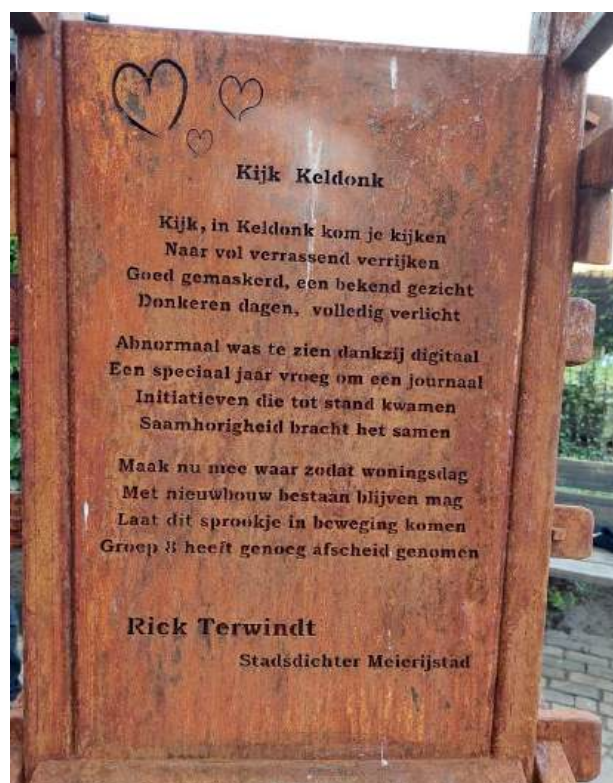 Kijk Keldonk
Kijk, in Keldonk kom je kijken
Naar vol verrassend verrijken
Goed gemaskerd, een bekend gezicht
Donkeren dagen, volledig verlicht
Abnormaal was te zien dankzij digitaal
Een speciaal jaar vroeg om een journaal
Initiatieven die tot stand kwamen
Saamhorigheid bracht het samen
Maak nu mee waar zodat woningsdag
Met nieuwbouw bestaan blijven mag
Laat dit sprookje in beweging komen
Groep 8 heeft genoeg afscheid genomen
Rick Terwindt
Stadsdichter Meierijstad